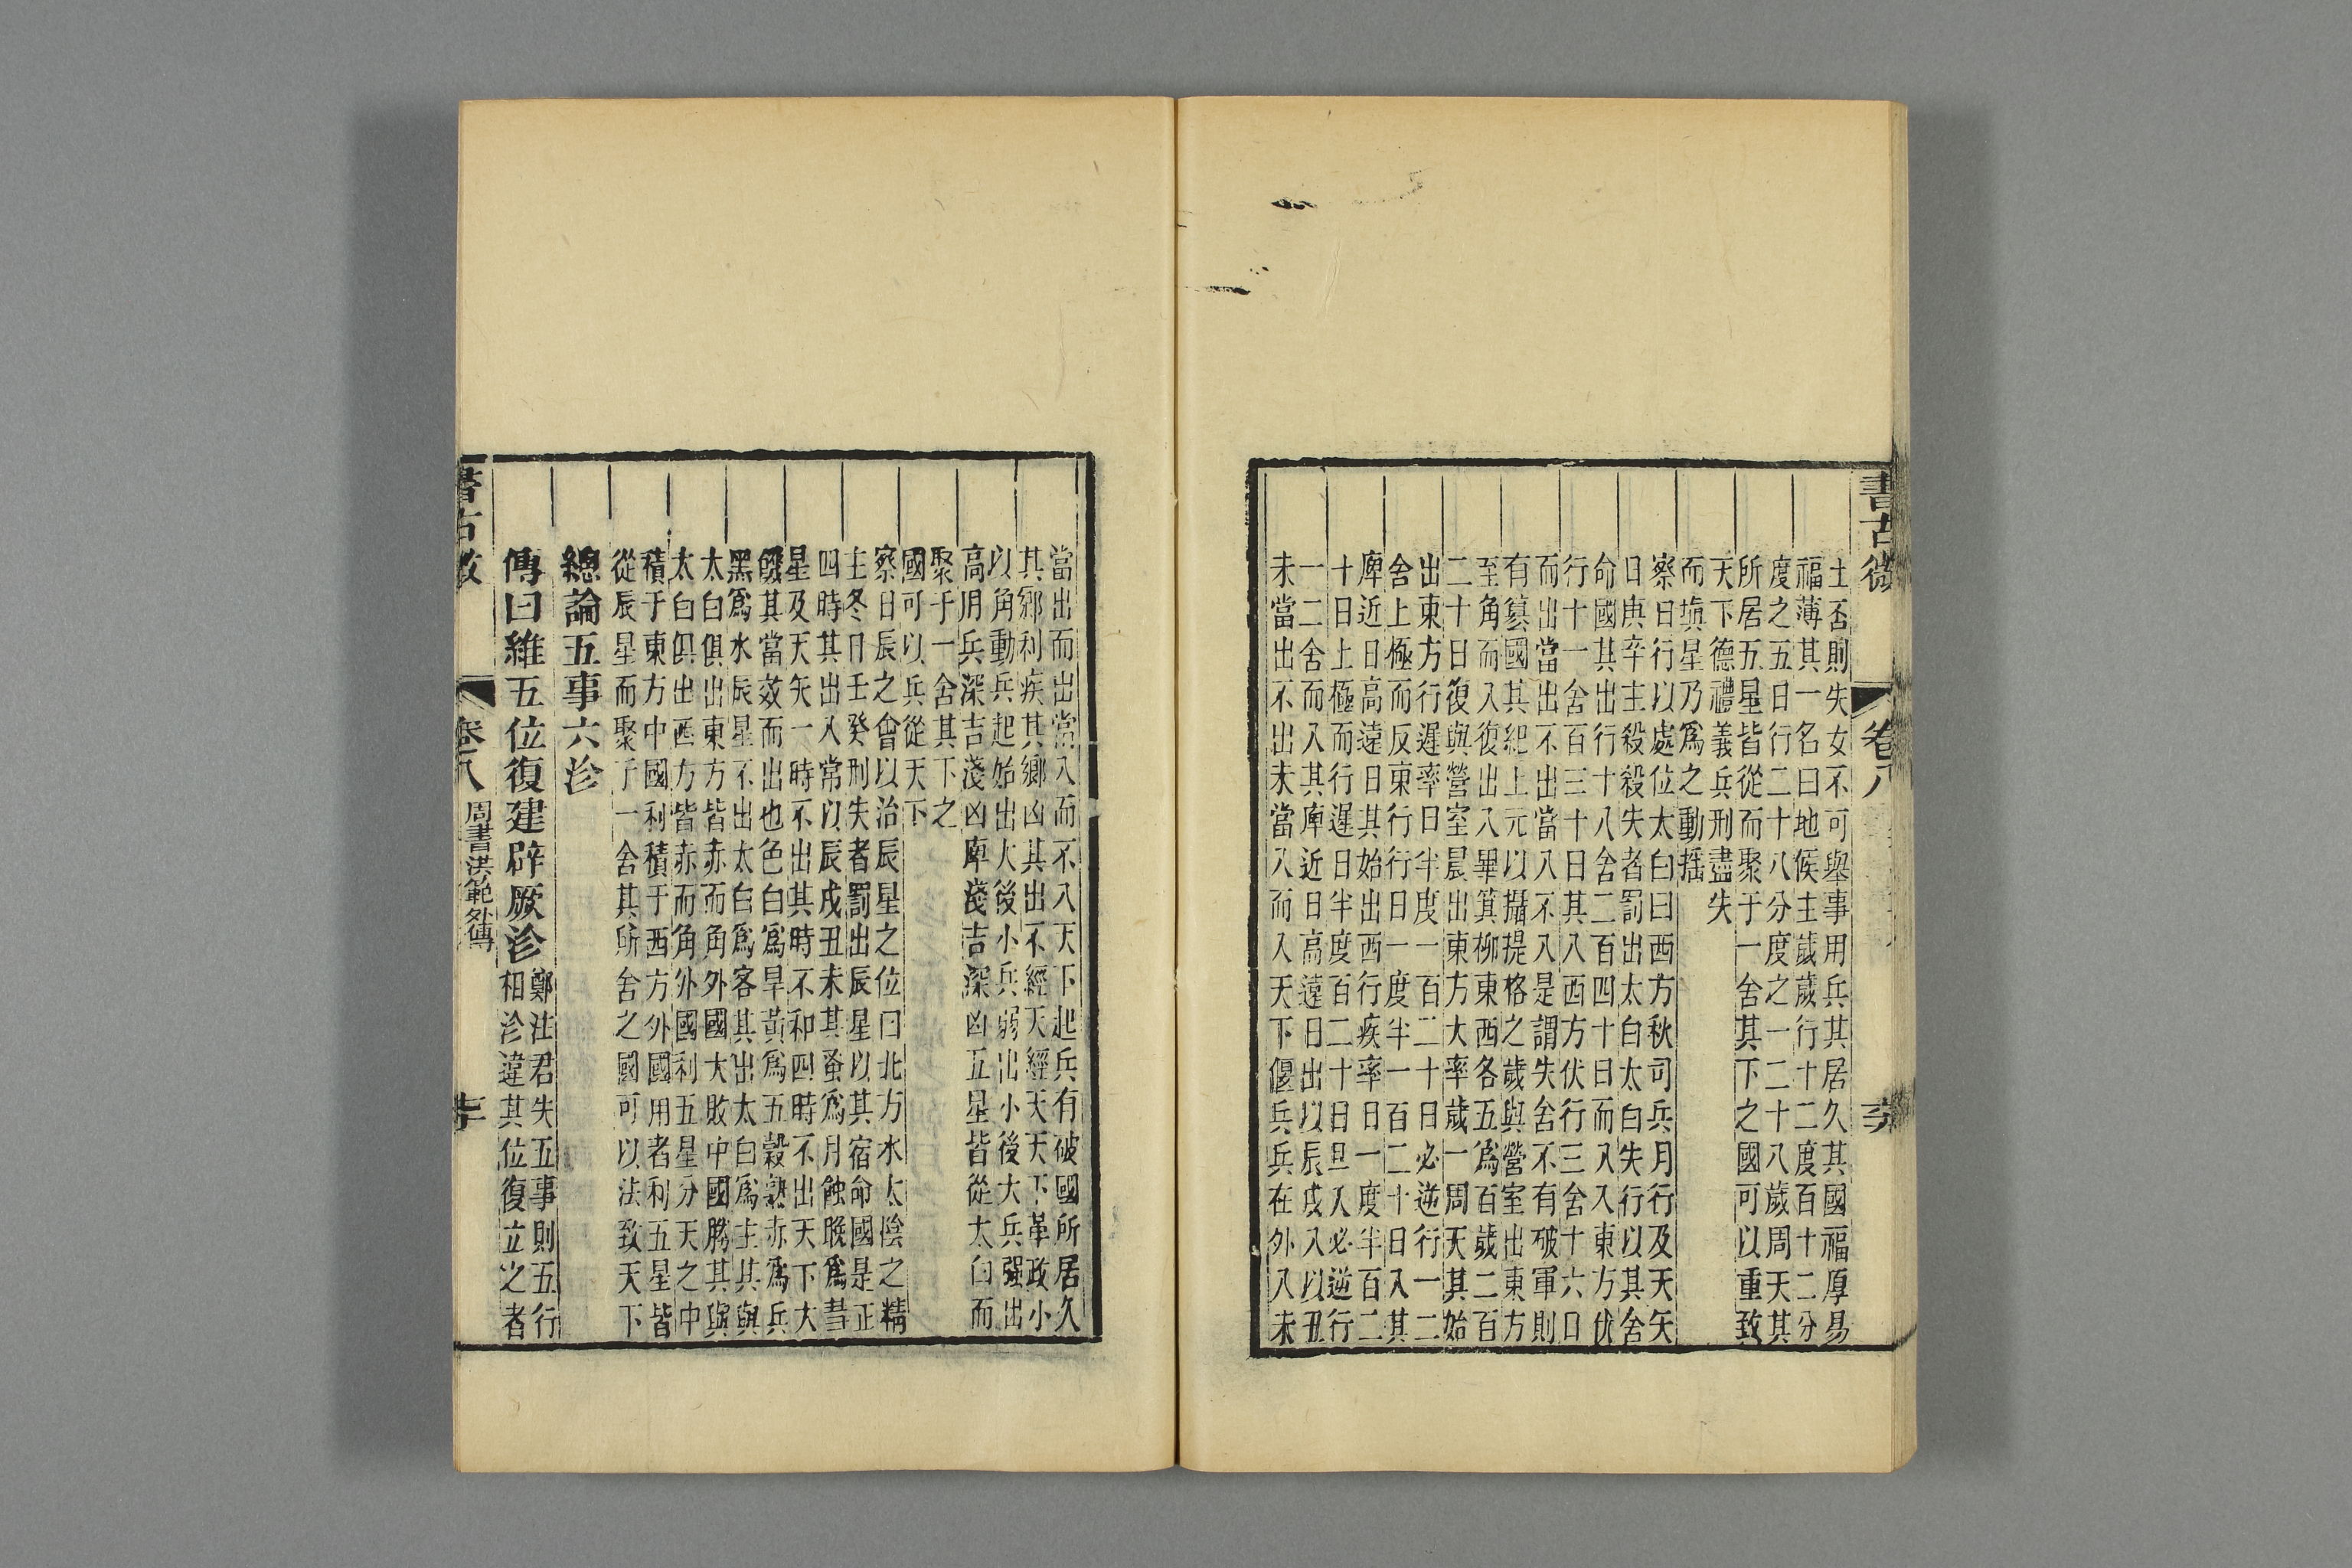 書古微
卷八
土否則失女不可舉事用兵其居久其國福厚易
福薄其一名曰地候主歲歲行十二度百十二分
度之五日行二十八分度之一二十八歲周天其
所居五星皆從而聚于一舍其下之國可以重致
天下德禮義兵刑盡失
而塡星乃爲之動搖
察日行以處位太白曰西方秋司兵月行及天矢
日庚辛主殺殺失者罰出太白太白失行以其舍
命國其出行十八舍二百四十日而入入東方伏
行十一舍百三十日其入西方伏行三舍十六日
而出當出不出當入不入是謂失舍不有破軍則
有簒國其紀上元以攝提格之歲與營室出東方
至角而入復出入畢箕柳東西各五爲百歲二百
二十日復與營室晨出東方大率歲一周天其始
出東方行遲率日半度一百二十日必逆行一二
舍上極而反東行行日一度半一百二十日入其
庳近日高遠日其始出西行疾率日一度半百二
十日上極而行遲日半度百二十日旦入必逆行
一二舍而入其庳近日高遠日出以辰戌入以丑
未當出不出未當入而入天下偃兵兵在外入未
當出而出當入而不入天下起兵有破國所居久
其鄉利疾其鄉凶其出不經天經天天下革政小
以角動兵起始出大後小兵弱出小後大兵强出
高用兵深吉淺凶庳淺吉深凶五星皆從太白而
聚于一舍其下之
國可以兵從天下
察日辰之會以治辰星之位曰北方水太陰之精
主冬日壬癸刑失者罰出辰星以其宿命國是正
四時其出入常以辰戌丑未其蚤爲月蝕晚爲彗
星及天矢一時不出其時不和四時不出天下大
饑其當效而出也色白爲旱黃爲五穀熟赤爲兵
黑爲水辰星不出太白爲客其出太白爲主其與
太白俱出東方皆赤而角外國大敗中國勝其與
太白俱出西方皆赤而角外國利五星分天之中
積于東方中國利積于西方外國用者利五星皆
從辰星而聚于一舍其所舍之國可以法致天下
總論五事六沴
傳曰維五位復建辟厥沴
鄭注君失五事則五行
相沴違其位復立之者
書古微
卷八
周書洪範外傳